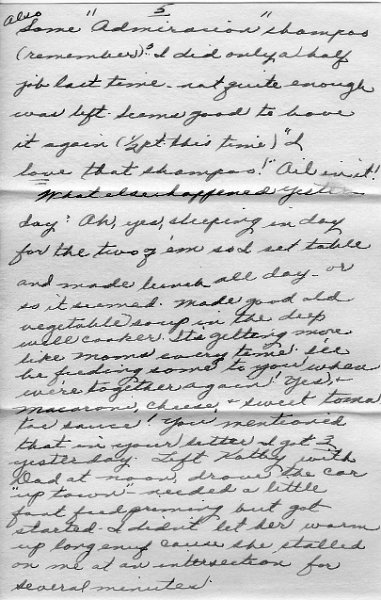 5
also
Some "Admiracion" shampoo
(remember)? I did only a half
job last time - not quite enough
was left. Seems good to have
it again (1/2 pt. this time) "I
love that shampoo!" Oil in it!
What else happened yester-
day? Oh, yes, sleeping in day
for the two of 'em so I set table
and made lunch all day - or
so it seemed. Made good old
vegetable soup in the deep
well cooker. It's getting more
like Moms every time. I'll
be feeding some to you when
we're together again! Yes, +
macaroni, cheese, + sweet toma
toe sauce! You mentioned
that in your letter I got 3
yesterday. Left Kathy with
Dad at noon, drove the car
"up town" - needed a little
foot feed priming but got
started. I didn't let her warm
up long enuf cause she stalled
on me at an intersection for
several minutes.